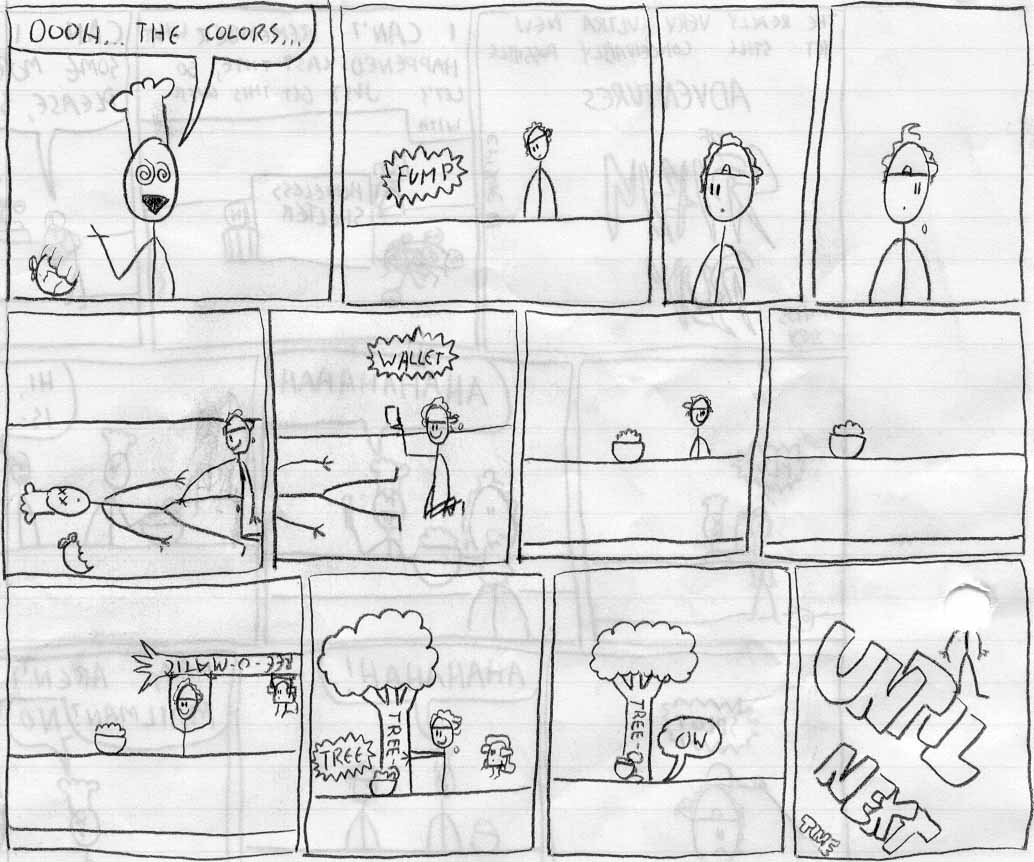 OOOH... THE COLORS...
FUMP
WALLET
REE-O-MATIC
TREE-O
TREE
TREE-O
OW
UNTIL
NEXT
TIME